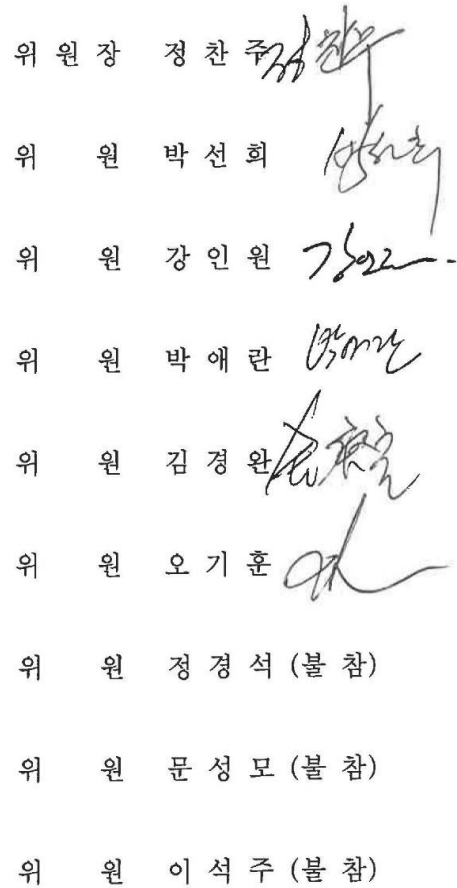 위 원 장 정 찬 주
위 원 박 선 희
위 원 강 인 원
위 원 박 애 란
위 원 김 경 완
위 원 오 기 훈
위 원 정 경 석 (불 참)
위 원 문 성 모 (불 참)
위 원 이 석 주 (불 참)